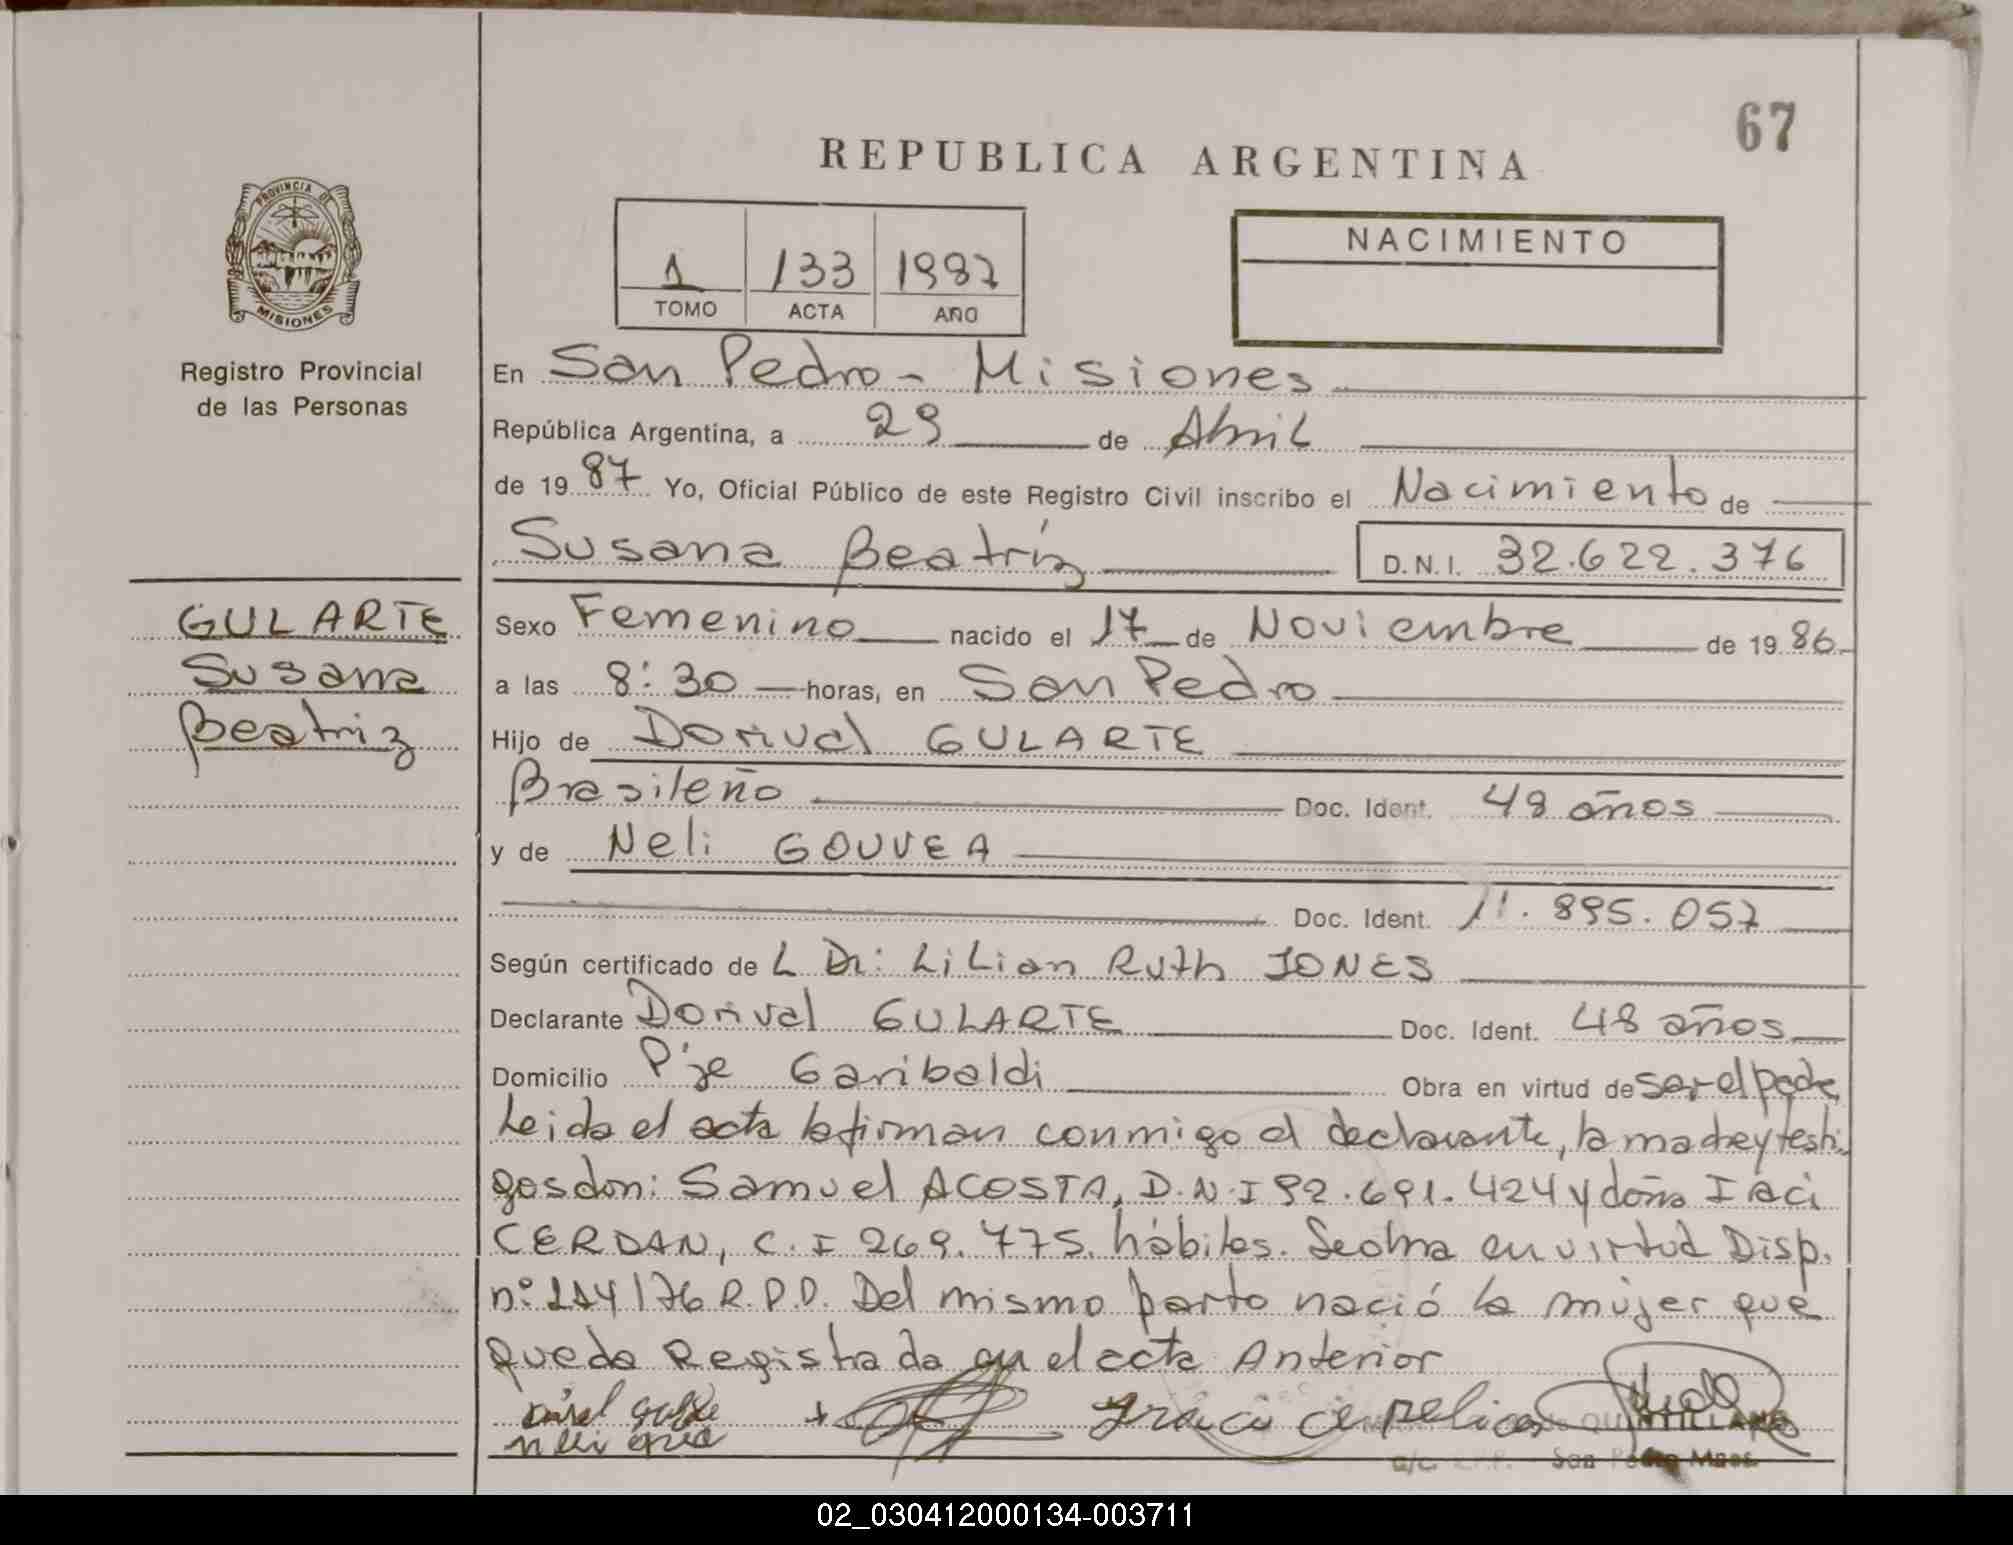 67
REPUBLICA ARGENTINA
PROVINCIA DE
MISIONES
Registro Provincial
de las Personas
1 133 1987
TOMO ACTA AÑO
NACIMIENTO
En San Pedro - Misiones
República Argentina, a 29 de Abril
de 1987 Yo, Oficial Público de este Registro Civil inscribo el Nacimiento de
Susana Beatríz D.N.I. 32.622.376
GULARTE
Susana
Beatriz
Sexo Femenino nacido el 17 de Noviembre de 1986
a las 8:30 horas, en San Pedro
Hijo de Dorival GULARTE
Brasileño Doc. Ident. 48 años
y de Neli GOUVEA
Doc. Ident. 11.895.057
Según certificado de L Dr: Lilian Ruth JONES
Declarante Dorival GULARTE Doc. Ident. 48 años
Domicilio P'je Garibaldi Obra en virtud de ser el padre
Leida el acta la firman conmigo el declarante, la madre y testi
gos don: Samuel ACOSTA, D.N.I 92.691.424 y doña Iraci
CERDAN, C.I 269.775. hábiles. Se obra en virtud Disp.
nº 114/76 R.P.P. Del mismo parto nació la mujer que
queda Registrada en el acta Anterior
QUINTILLANA
San Pedro Mnes.
02_030412000134-003711